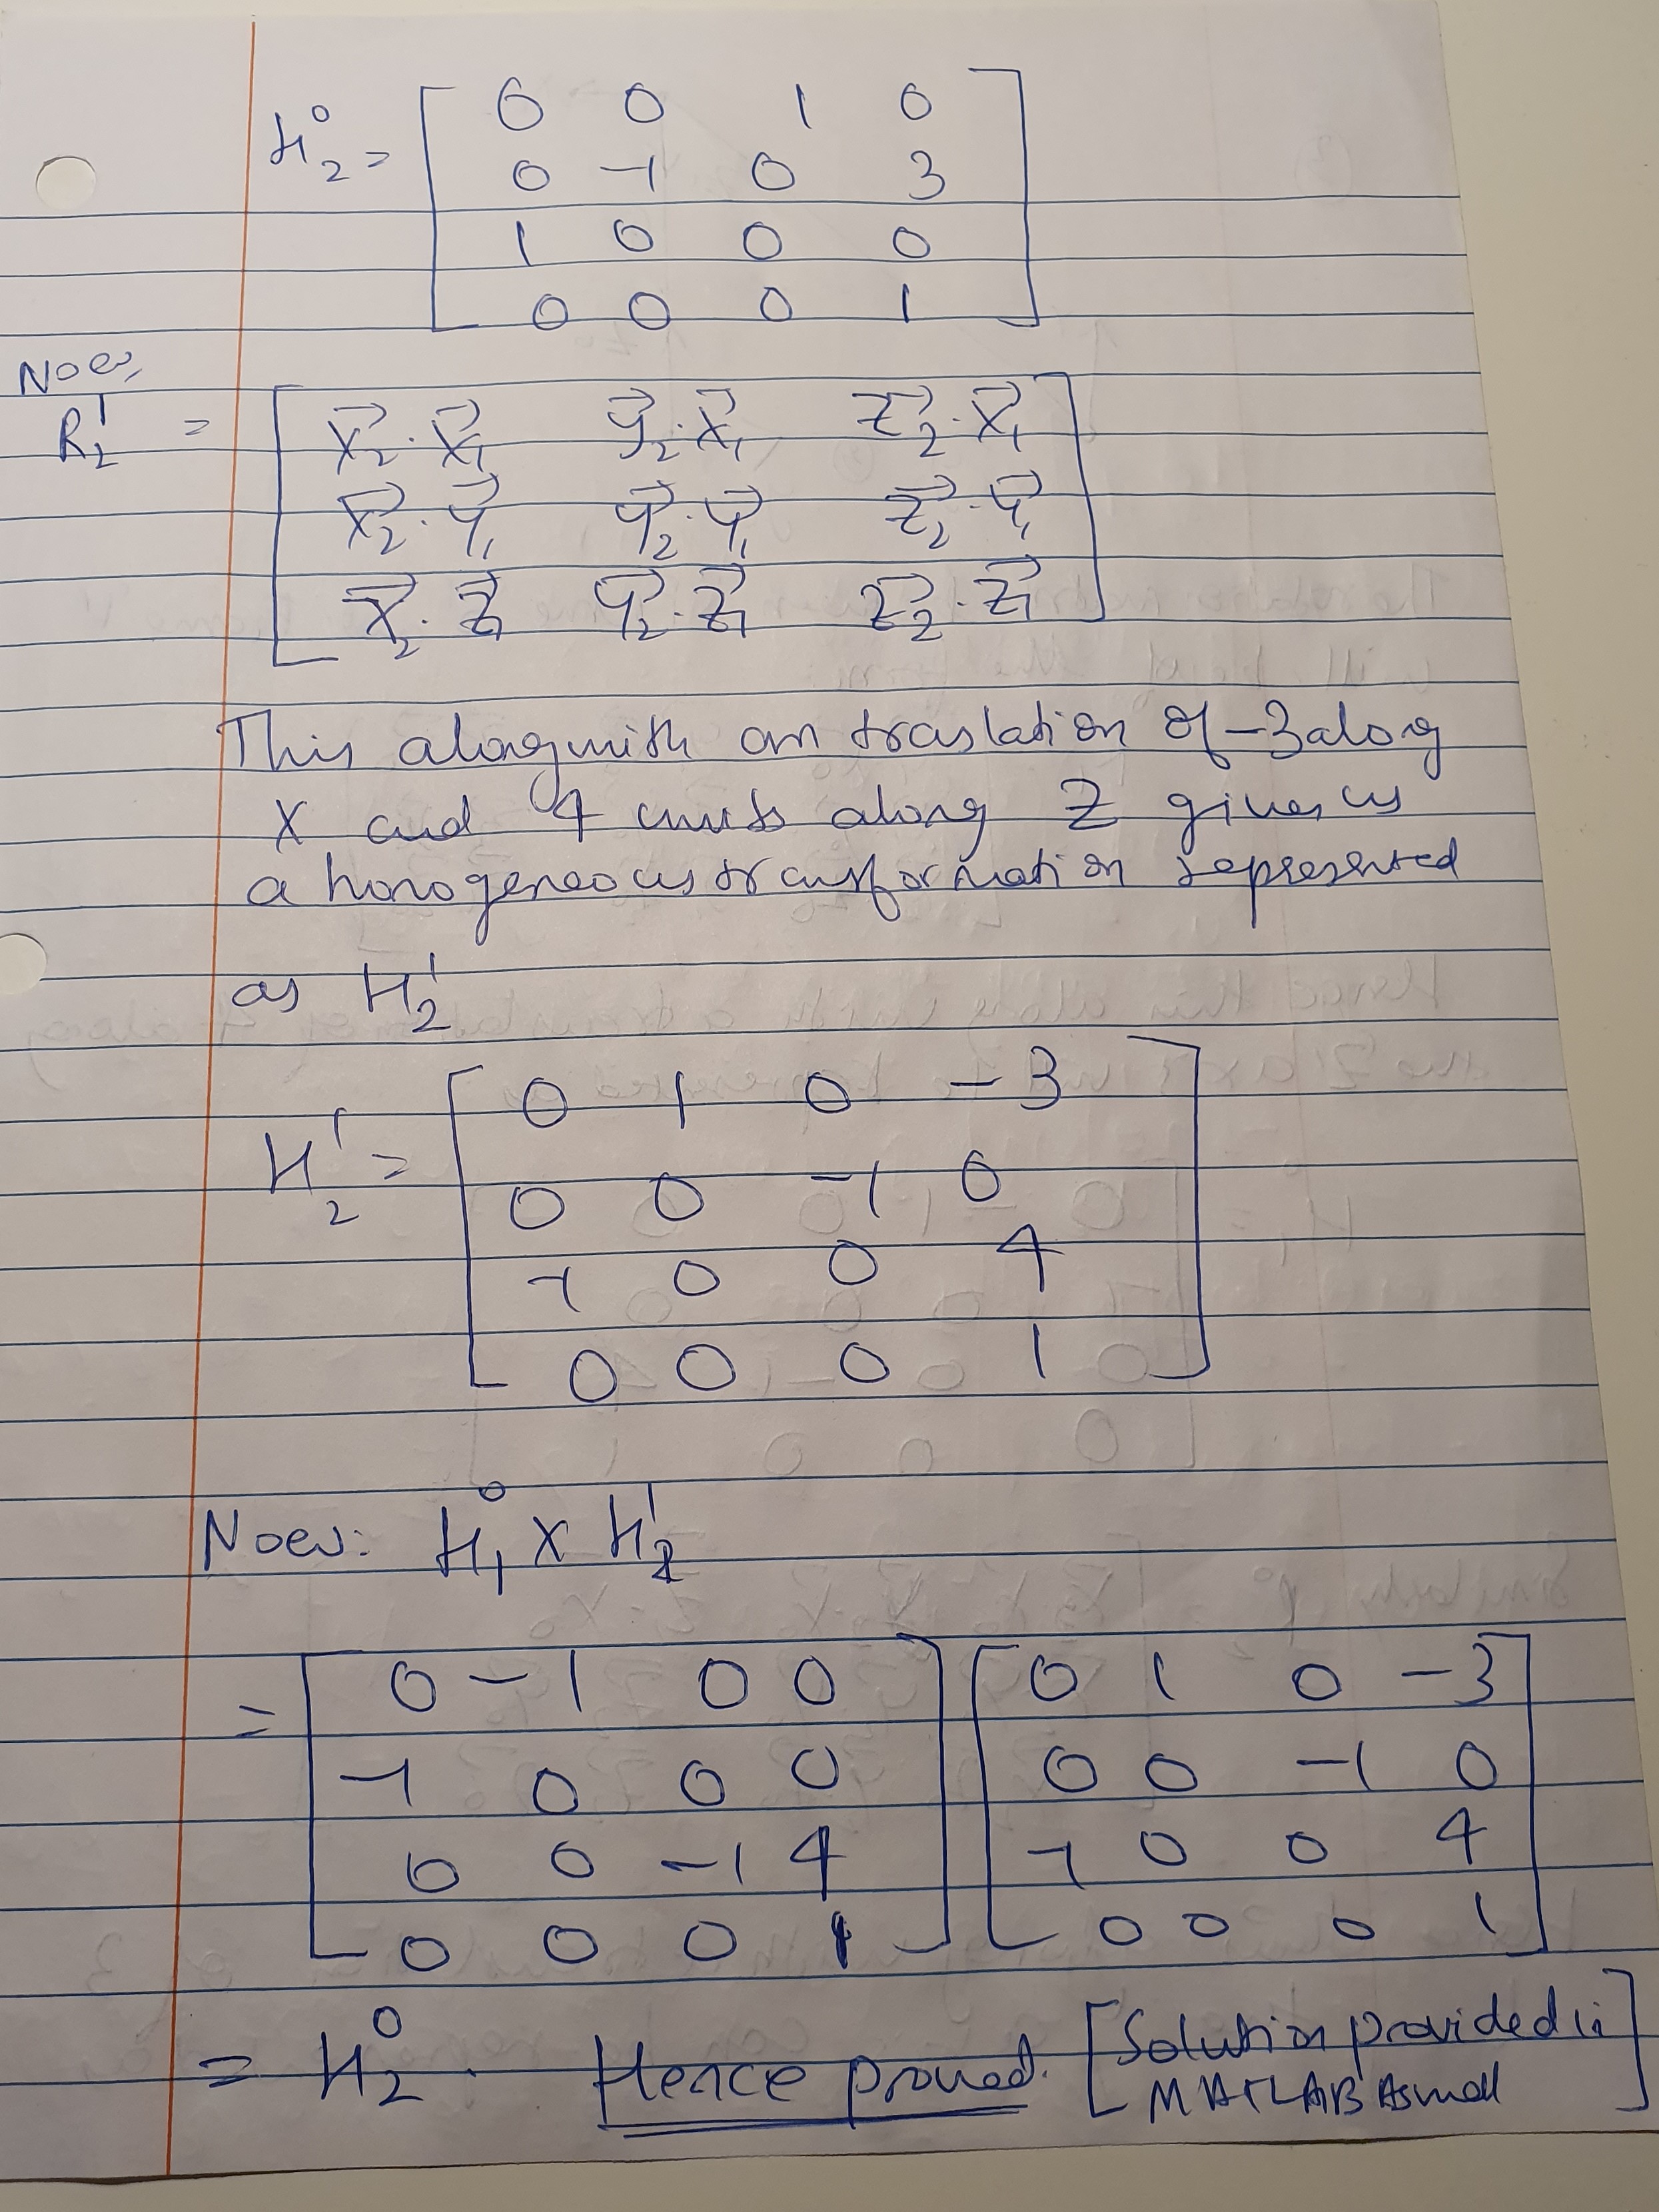 H⁰₂ = [ 0 0 1 0
0 -1 0 3
1 0 0 0
0 0 0 1 ]
Now,
R¹₂ = [ x⃗₂·x⃗₁ y⃗₂·x⃗₁ z⃗₂·x⃗₁
x⃗₂·y⃗₁ y⃗₂·y⃗₁ z⃗₂·y⃗₁
x⃗₂·z⃗₁ y⃗₂·z⃗₁ z⃗₂·z⃗₁ ]
This alongwith an traslation of -3 along
X and 4 units along Z gives us
a homogeneous transformation represented
as H¹₂
H¹₂ = [ 0 1 0 -3
0 0 -1 0
-1 0 0 4
0 0 0 1 ]
Now: H⁰₁ X H¹₂
= [ 0 -1 0 0 ] [ 0 1 0 -3 ]
[ -1 0 0 0 ] [ 0 0 -1 0 ]
[ 0 0 -1 4 ] [ -1 0 0 4 ]
[ 0 0 0 1 ] [ 0 0 0 1 ]
= H⁰₂. Hence proved. [Solution provided in
MATLAB As well]